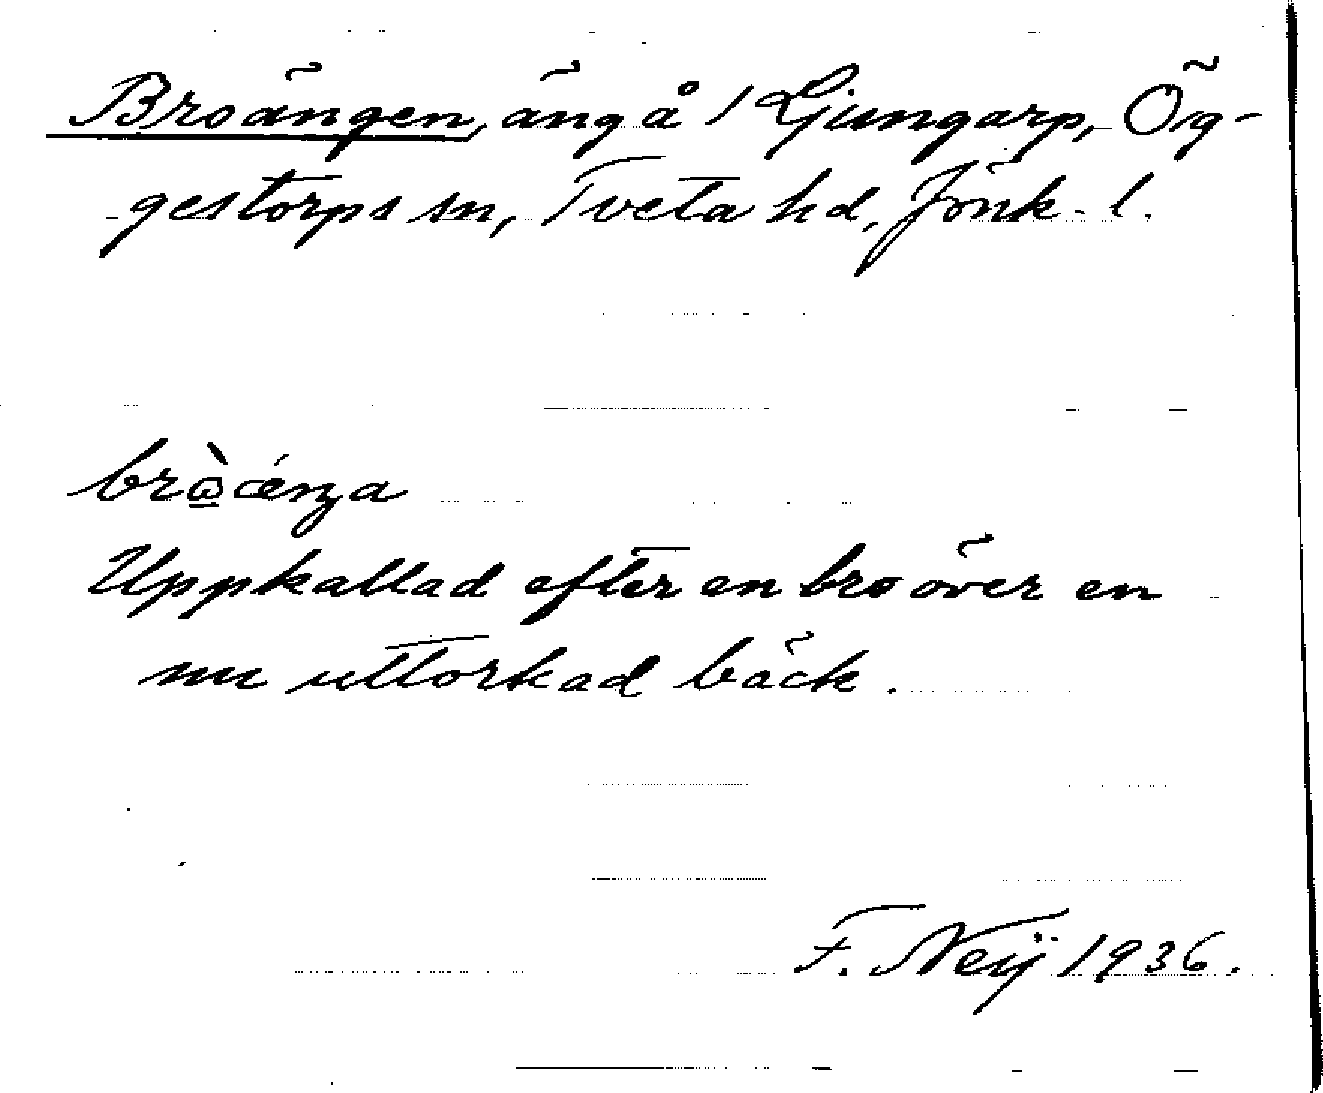 Broängen, äng å 1 Ljungarp, Ög-
gestorps sn, Tveta hd, Jönk. l.
Uppkallad efter en bro över en
nu uttorkad bäck.
F. Neij 1936.